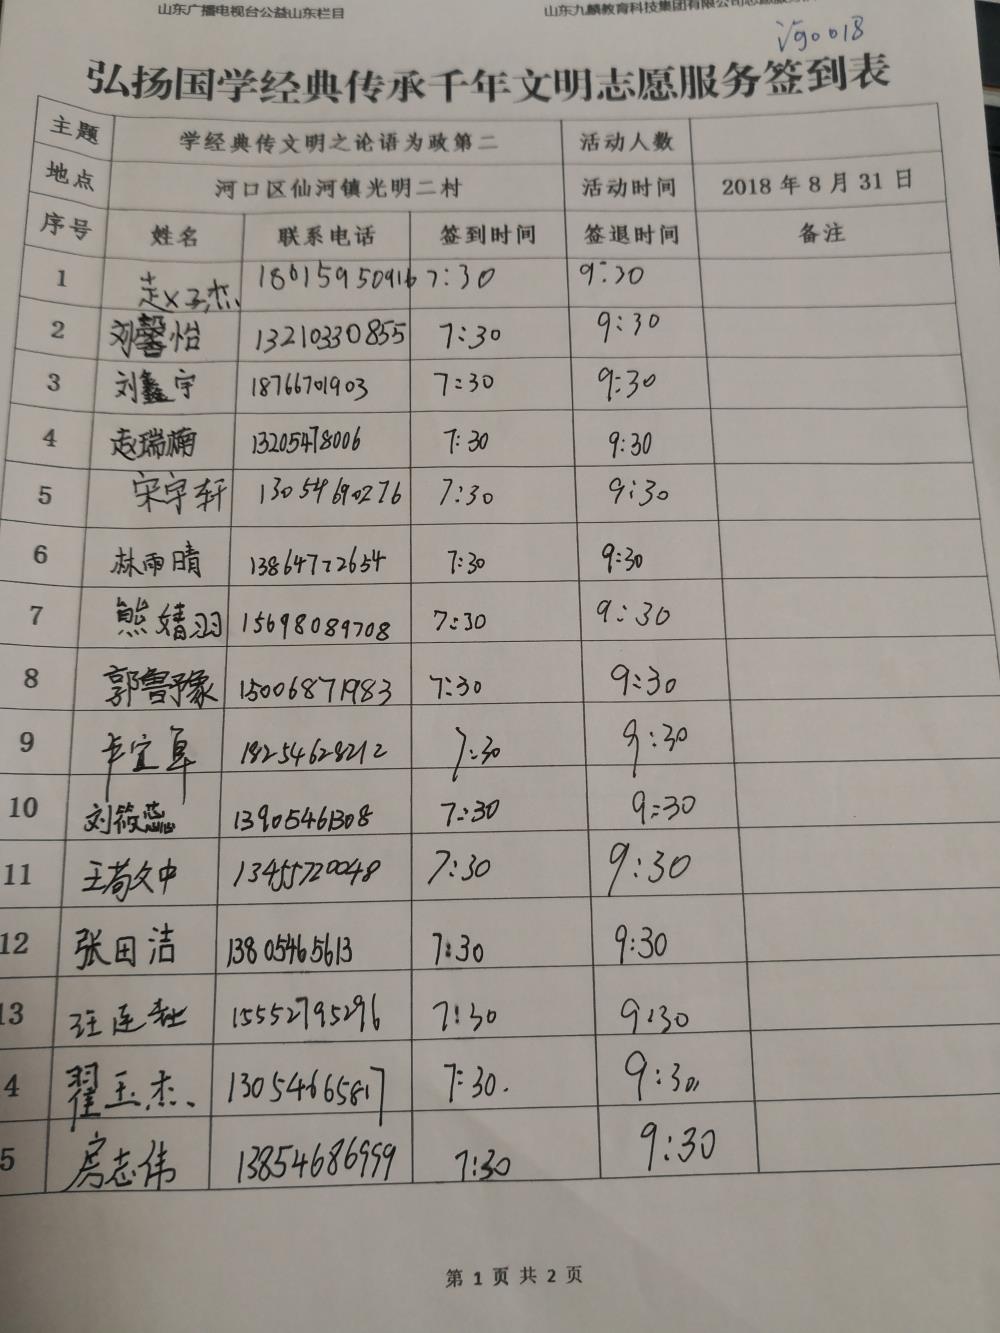 山东广播电视台公益山东栏目 山东九麟教育科技集团有限公司志愿服务
√90018
弘扬国学经典传承千年文明志愿服务签到表
主题 学经典传文明之论语为政第二 活动人数
地点 河口区仙河镇光明二村 活动时间 2018年8月31日
序号 姓名 联系电话 签到时间 签退时间 备注
1 赵文杰 18615950916 7:30 9:30
2 刘馨怡 13210330855 7:30 9:30
3 刘鑫宇 18766701903 7:30 9:30
4 赵瑞楠 13205478006 7:30 9:30
5 宋宇轩 13054690276 7:30 9:30
6 林雨晴 13864772654 7:30 9:30
7 熊婧羽 15698089708 7:30 9:30
8 郭鲁豫 15006871983 7:30 9:30
9 宜 18254628212 7:30 9:30
10 刘筱蕊 13905461308 7:30 9:30
11 王荀文中 13455720048 7:30 9:30
12 张田洁 13805465613 7:30 9:30
13 汪连 15552795296 7:30 9:30
4 翟玉杰 13054665817 7:30. 9:30
5 房志伟 13854686999 7:30 9:30
第 1 页 共 2 页